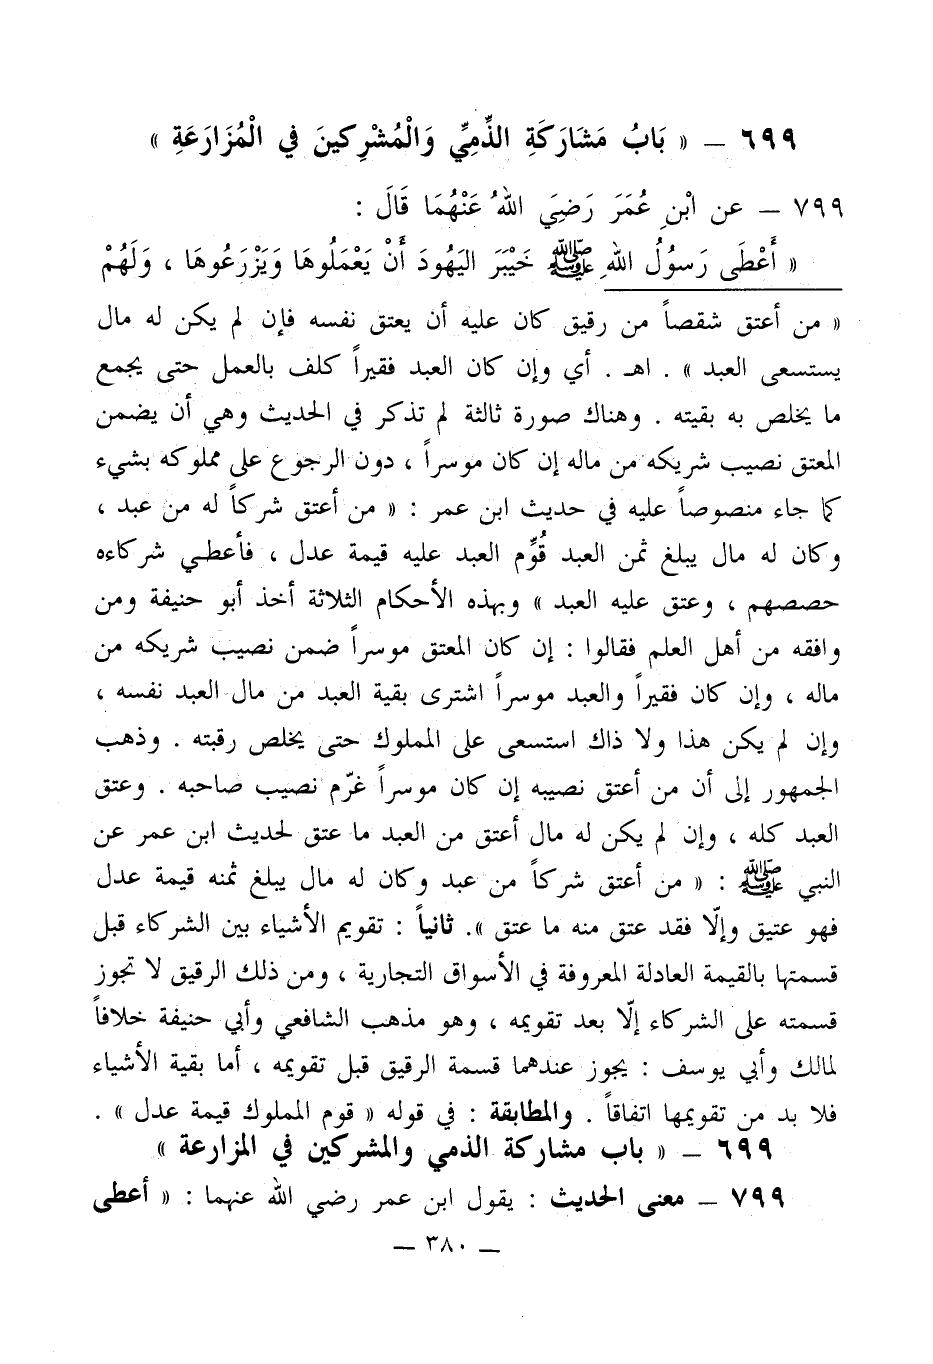 ٦٩٩ – « بَابُ مَشَارَكَةِ الذِّمِيِّ وَالْمُشْرِكِينَ فِي الْمُزَارَعَةِ »
٧٩٩ – عن ابْنِ عُمَرَ رَضِيَ اللهُ عَنْهُمَا قَالَ :
« أَعْطَى رَسوُلُ اللهِ ﷺ خَيْبَرَ اليَهُودَ أَنْ يَعْمَلُوهَا وَيَزْرَعُوهَا ، وَلَهُمْ
« من أعتق شقصاً من رقيق كان عليه أن يعتق نفسه فإن لم يكن له مال
يستسعى العبد » . اهـ . أي وإن كان العبد فقيراً كلف بالعمل حتى يجمع
ما يخلص به بقيته . وهناك صورة ثالثة لم تذكر في الحديث وهي أن يضمن
المعتق نصيب شريكه من ماله إن كان موسراً ، دون الرجوع على مملوكه بشيء
كما جاء منصوصاً عليه في حديث ابن عمر : « من أعتق شركاً له من عبد ،
وكان له مال يبلغ ثمن العبد قُوِّم العبد عليه قيمة عدل ، فأعطي شركاءه
حصصهم ، وعتق عليه العبد » وبهذه الأحكام الثلاثة أخذ أبو حنيفة ومن
وافقه من أهل العلم فقالوا : إن كان المعتق موسراً ضمن نصيب شريكه من
ماله ، وإن كان فقيراً والعبد موسراً اشترى بقية العبد من مال العبد نفسه ،
وإن لم يكن هذا ولا ذاك استسعى على المملوك حتى يخلص رقبته . وذهب
الجمهور إلى أن من أعتق نصيبه إن كان موسراً غرّم نصيب صاحبه . وعتق
العبد كله ، وإن لم يكن له مال أعتق من العبد ما عتق لحديث ابن عمر عن
النبي ﷺ : « من أعتق شركاً من عبد وكان له مال يبلغ ثمنه قيمة عدل
فهو عتيق وإلّا فقد عتق منه ما عتق ». ثانياً : تقويم الأشياء بين الشركاء قبل
قسمتها بالقيمة العادلة المعروفة في الأسواق التجارية ، ومن ذلك الرقيق لا تجوز
قسمته على الشركاء إلّا بعد تقويمه ، وهو مذهب الشافعي وأبي حنيفة خلافاً
لمالك وأبي يوسف : يجوز عندهما قسمة الرقيق قبل تقويمه ، أما بقية الأشياء
فلا بد من تقويمها اتفاقاً . والمطابقة : في قوله « قوم المملوك قيمة عدل » .
٦٩٩ – « باب مشاركة الذمي والمشركين في المزارعة »
٧٩٩ – معنى الحديث : يقول ابن عمر رضي الله عنهما : « أعطى
– ٣٨٠ –